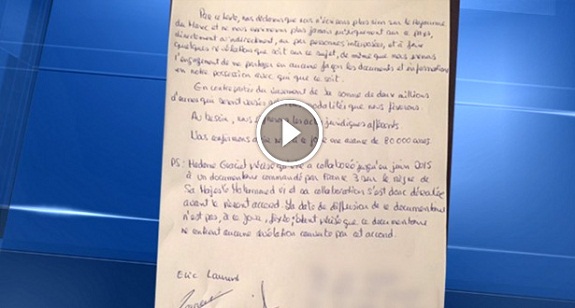 Par ce texte, nous déclarons que nous n'écrirons plus rien sur le Royaume
du Maroc et ne nous exprimerons plus jamais publiquement sur ce pays,
directement ou indirectement, ou par personnes interposées, et à faire
quelques révélations que ce soit sur ce sujet, de même que nous prenons
l'engagement de ne partager en aucune façon les documents et informations
en notre possession avec qui que ce soit.
En contrepartie du versement de la somme de deux millions
d'euros qui seront versés modalités que nous fixerons.
Au besoin, nous les actes juridiques afférents.
Nous confirmons ce jour une avance de 80 000 euros
PS: Madame Graciet précise qu'elle a collaboré jusqu'en juin 2015
à un documentaire commandé par France 3 sur le règne de
Sa Majesté Mohammed VI et sa collaboration s'est donc déroulée
avant le présent accord. La date de diffusion de ce documentaire
n'est pas, à ce jour, fixée; étant précisé que ce documentaire
ne contient aucune révélation par cet accord.
Eric Laurent